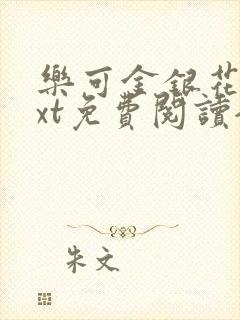 樂可金銀花
xt免費閱讀
朱文